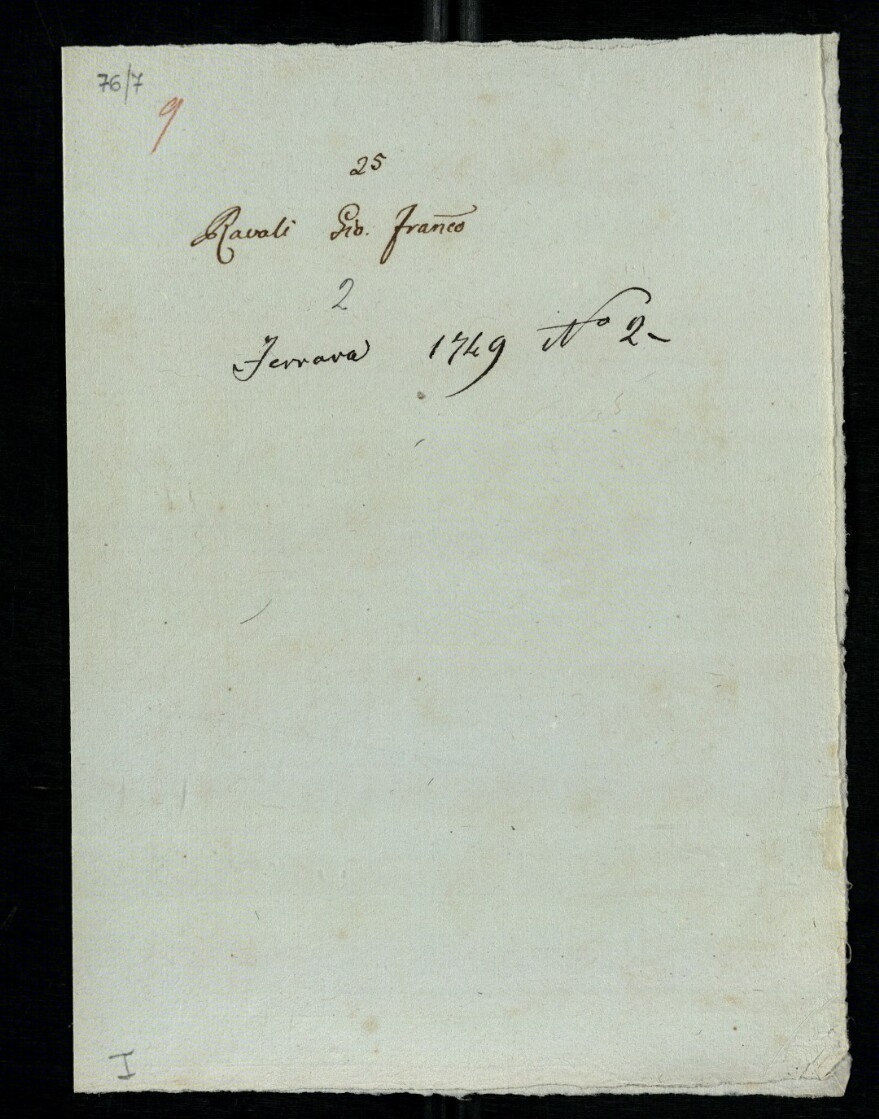 76/7
9
25
Ravali Gio. Fran̄co
2
Ferrara 1749 No 2-
I